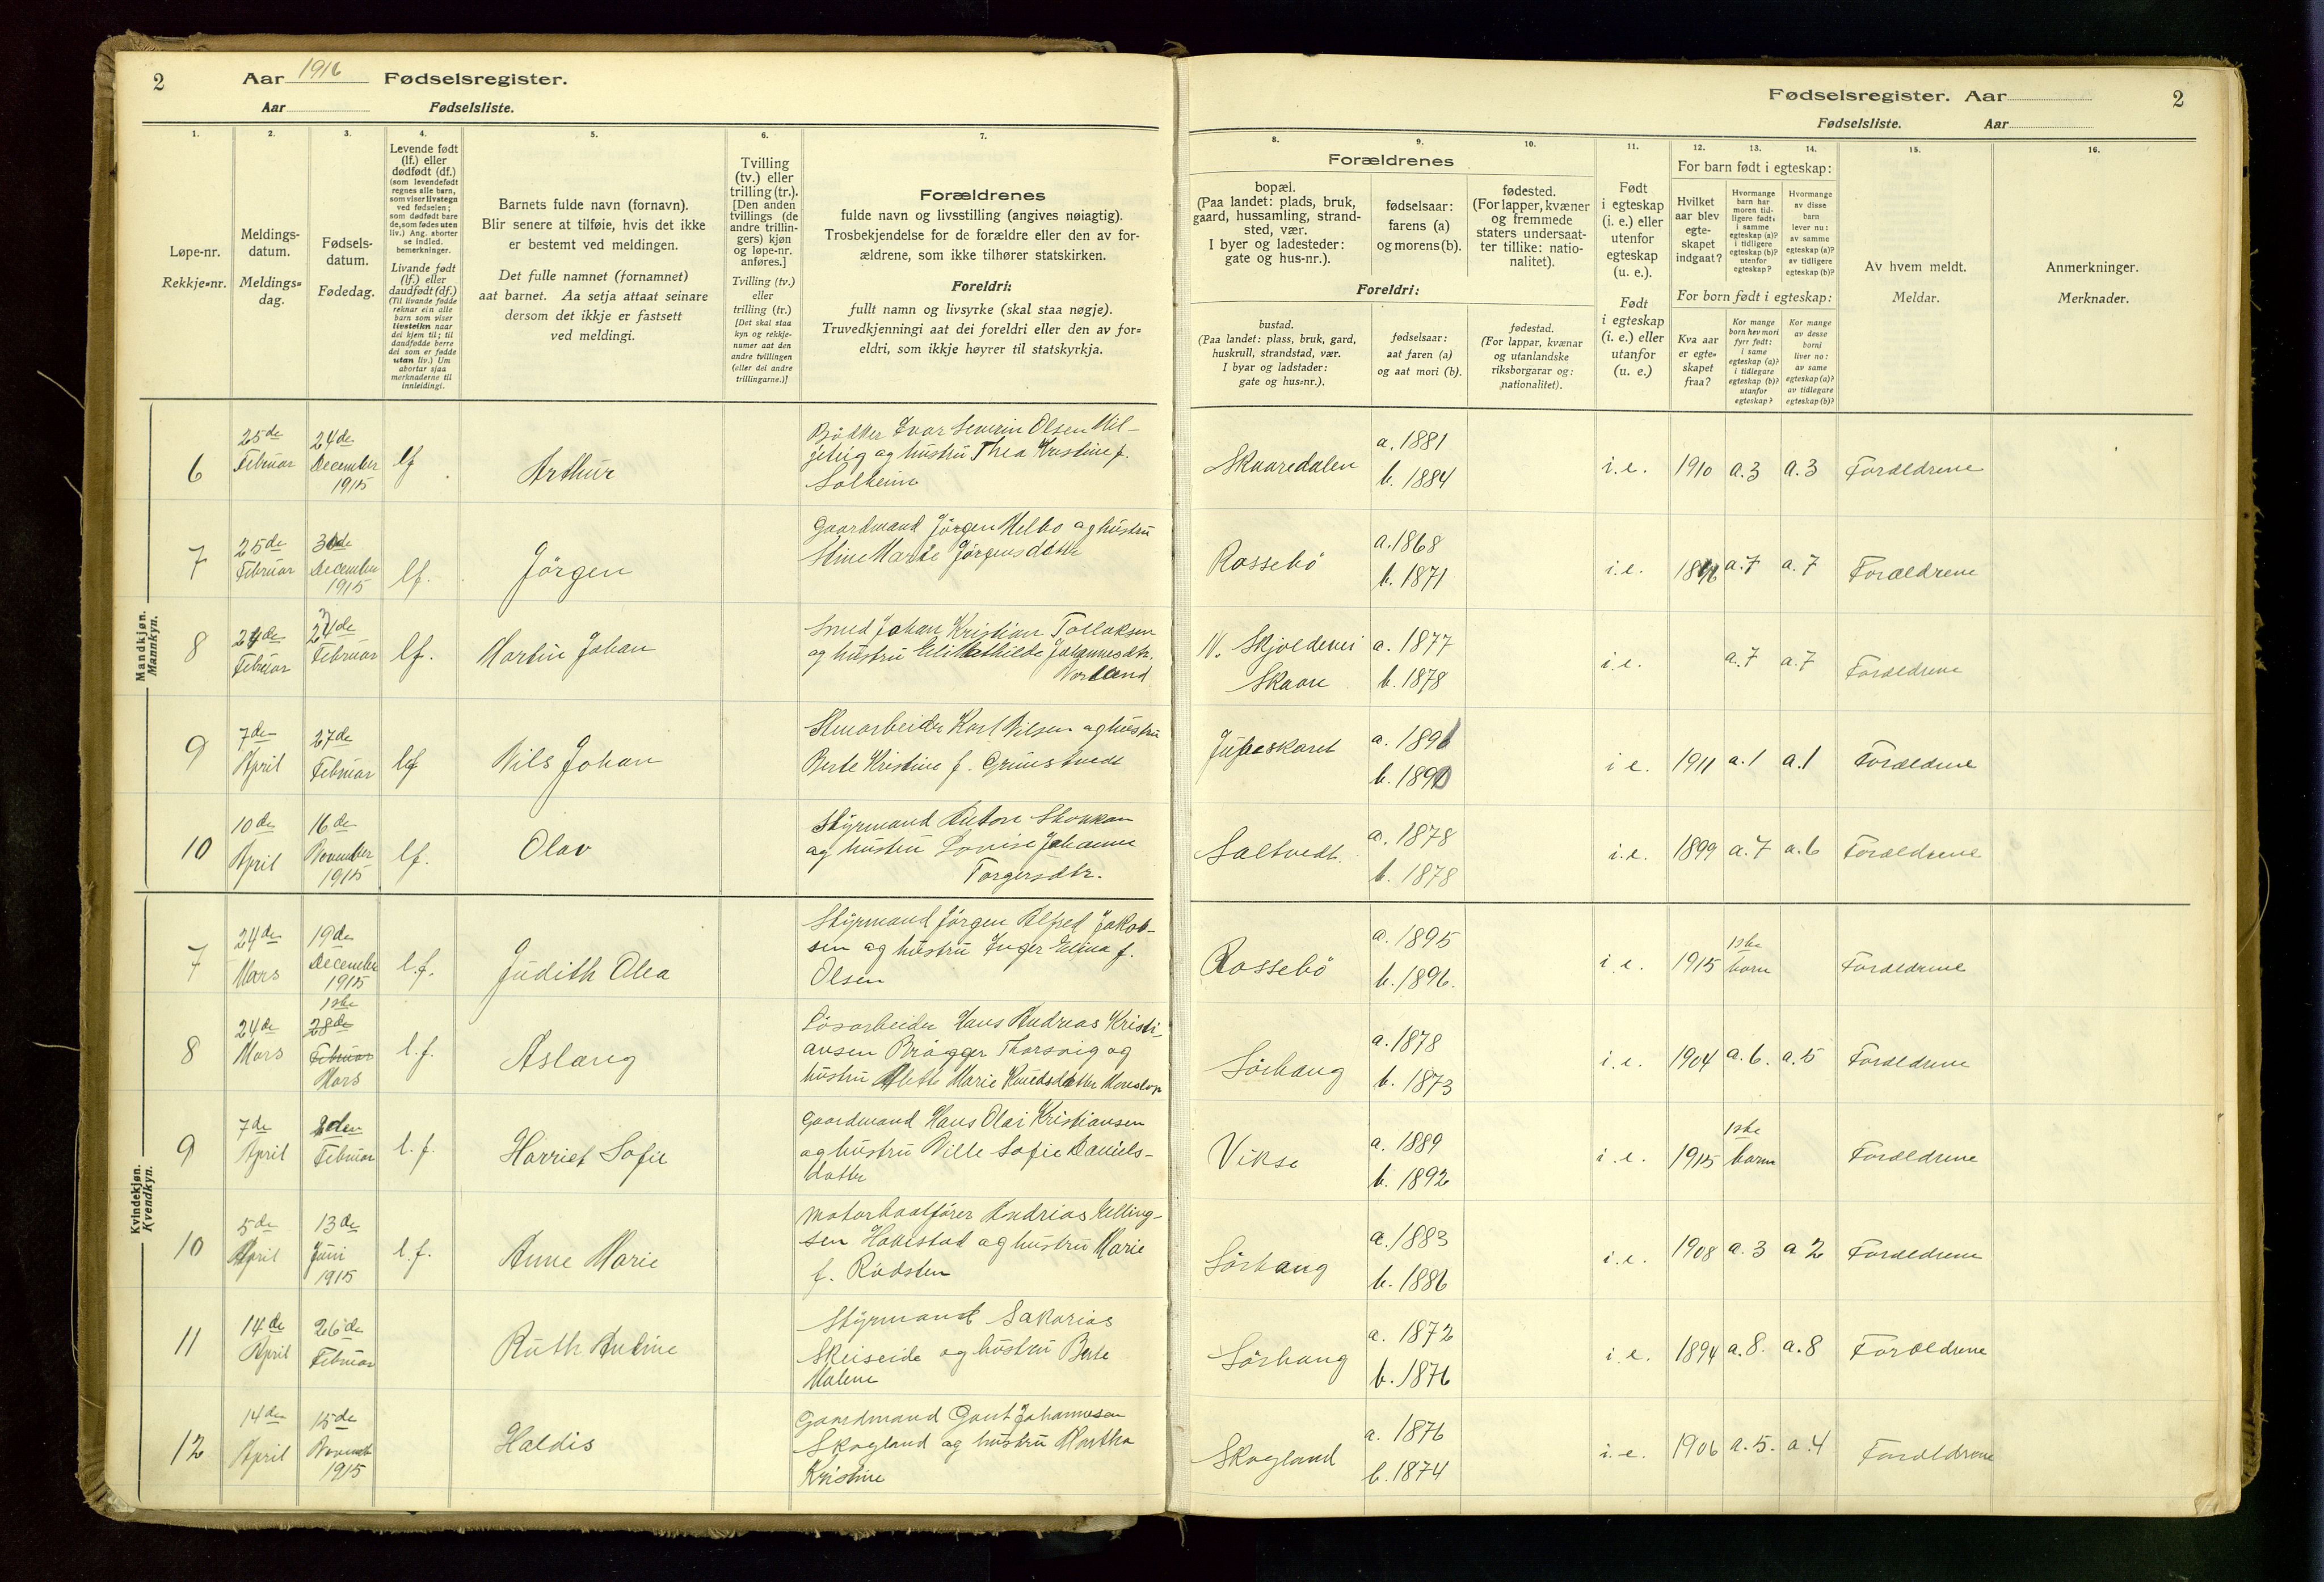 2
Aar 1916 Fødselsregister.
Aar Fødselsliste.
1.
2.
3.
4.
5.
6.
7.
Løpe-nr.
Rekkje-nr.
Meldings-
datum.
Meldings-
dag.
Fødsels-
datum.
Fødedag.
Levende født
(lf.) eller
dødfødt (df.)
(som levendefødt
regnes alle barn,
som viser livstegn
ved fødselen;
som dødfødt bare
de, som fødes uten
liv.) Ang. aborter
se indled.
bemerkninger.
Livande født
(lf.) eller
daudfødt (df.)
(Til livande fødde
reknar ein alle
barn som viser
livsteikn naar
dei kjem til; til
daudfødde berre
dei som er fødde
utan liv.) Um
abortar sjaa
merknaderne til
innleidingi.
Barnets fulde navn (fornavn).
Blir senere at tilføie, hvis det ikke
er bestemt ved meldingen.
Det fulle namnet (fornamnet)
aat barnet. Aa setja attaat seinare
dersom det ikkje er fastsett
ved meldingi.
Tvilling
(tv.) eller
trilling (tr.).
[Den anden
tvillings (de
andre trillin-
gers) kjøn
og løpe-nr.
anføres.]
Tvilling (tv.)
eller
trilling (tr.)
[Det skal staa
kyn og rekkje-
numer aat den
andre tvillingen
(eller dei andre
trillingarne.)]
Forældrenes
fulde navn og livsstilling (angives nøiagtig).
Trosbekjendelse for de forældre eller den av for-
ældrene, som ikke tilhører statskirken.
Foreldri:
fullt namn og livsyrke (skal staa nøgje).
Truvedkjenningi aat dei foreldri eller den av for-
eldri, som ikkje høyrer til statskyrkja.
Fødselsregister. Aar 2
Fødselsliste. Aar
8.
9.
10.
11.
12.
13.
14.
15.
16.
Forældrenes
bopæl.
(Paa landet: plads, bruk,
gaard, hussamling, strand-
sted, vær.
I byer og ladesteder:
gate og hus-nr.).
fødselsaar:
farens (a)
og morens (b).
fødested.
(For lapper, kvæner
og fremmede
staters undersaat-
ter tillike: natio-
nalitet).
Foreldri:
bustad.
(Paa landet: plass, bruk, gard,
huskrull, strandstad, vær.
I byar og ladstader:
gate og hus-nr.).
fødselsaar:
aat faren (a)
og aat mori (b).
fødestad.
(For lappar, kvænar
og utanlandske
riksborgarar og:
nationalitet).
Født
i egteskap
(i. e.) eller
utenfor
egteskap
(u. e.).
Født
i egteskap
(i. e.) eller
utanfor
(u. e.).
For barn født i egteskap:
Hvilket
aar blev
egte-
skapet
indgaat?
Hvormange
barn har
moren tid-
ligere født:
i samme
egteskap (a)?
i tidligere
egteskap (b)?
utenfor
egteskap?
Hvormange
av disse
barn
lever nu:
av samme
egteskap (a)?
av tidligere
egteskap (b)?
For born født i egteskap:
Kva aar
er egte-
skapet
fraa?
Kor mange
born hev mori
fyrr født:
i same
egteskap (a)?
i tidlegare
egteskap (b)?
utanfor
egteskap?
Kor mange
av desse
borni
liver no:
av same
egteskap (a)?
av tidlegare
egteskap (b)?
Av hvem meldt.
Meldar.
Anmerkninger.
Merknader.
Mandkjøn.
Mannkyn.
6 25de Februar 24de December 1915 lf Arthur
Bødker Ivar Severin Olsen Mil-
jeteig og hustru Thea Kristine f.
Solheim
Skaaredalen a. 1881 b. 1884 i.e. 1910 a.3 a.3 Forældrene
7 25de Februar December 1915 lf. Jörgen
Gaardmand Jörgen Helbo og hustru
Stine Marie Jörgensdatter
Rossebö a. 1868 b. 1871 i.e. a.7 a.7 Forældrene
8 Februar Februar lf. Martin Johan
Smed Johan Kristian Tollaksen
og hustru Eli Mathilde Johannesdtr.
Norland
N. Skjoldevei Skaare a. 1877 b. 1878 i.e. a.7 a.7 Forældrene
9 7de April 27de Februar lf Nils Johan
Stuarbeider Karl Nilsen og hustru
Berte Kristine f. Grimstvedt
a. 1891 b. 1890 i e. 1911 a.1 a.1 Forældrene
10 10de April 16de November 1915 lf. Olav
Styrmand Anton Stokkan
og hustru Lovise Johanne
Torgersdtr.
Saltvedt. a. 1878 b. 1878 i.e. 1899 a.7 a.6 Forældrene
Kvindekjøn.
Kvendkyn.
7 24de Mars 19de December 1915 l.f. Judith Olea
Styrmand Jörgen Alfred Jakob-
sen og hustru Inger Elina f.
Olsen
Rossebö a. 1895 b. 1896. i.e. 1915 1ste barn Forældrene
8 24de Mars 1ste 28de Februar Mars l.f. Aslaug
Lösarbeider Hans Andreas Kristi-
ansen Brügger Thorsvig og
hustru Mette Marie Knudsdatter
Sörhaug a. 1878 b. 1873 i.e. 1904 a.6. a.5 Forældrene
9 7de April Februar l.f. Harriet Sofie
Gaardmand Hans Olai Kristiansen
og hustru Nille Sofie Daniels-
datter
Vikse a. 1889 b. 1892 i.e. 1915 1ste barn Forældrene
10 5de April 13de Juni 1915 l.f. Anne Marie
Motorbaatförer Andreas Elling-
sen Havestad og hustru Marie
f. Rödsten
Sörhaug a. 1883 b. 1886 i.e. 1908 a.3 a 2 Forældrene
11 14de April 26de Februar Ruth Andrine
Styrmand Sakarias
Skeiseide og hustru Berte
Malene
Sörhaug a. 1872 b. 1876 i.e. 1894 a.8. a.8 Forældrene
12 14de April 15de Novemb 1915 Haldis
Gaardmand Gaut Johannesen
Skogland og hustru Martha
Kristine
Skogland a. 1876 b. 1874 i.e. 1906 a.5. a.4 Forældrene